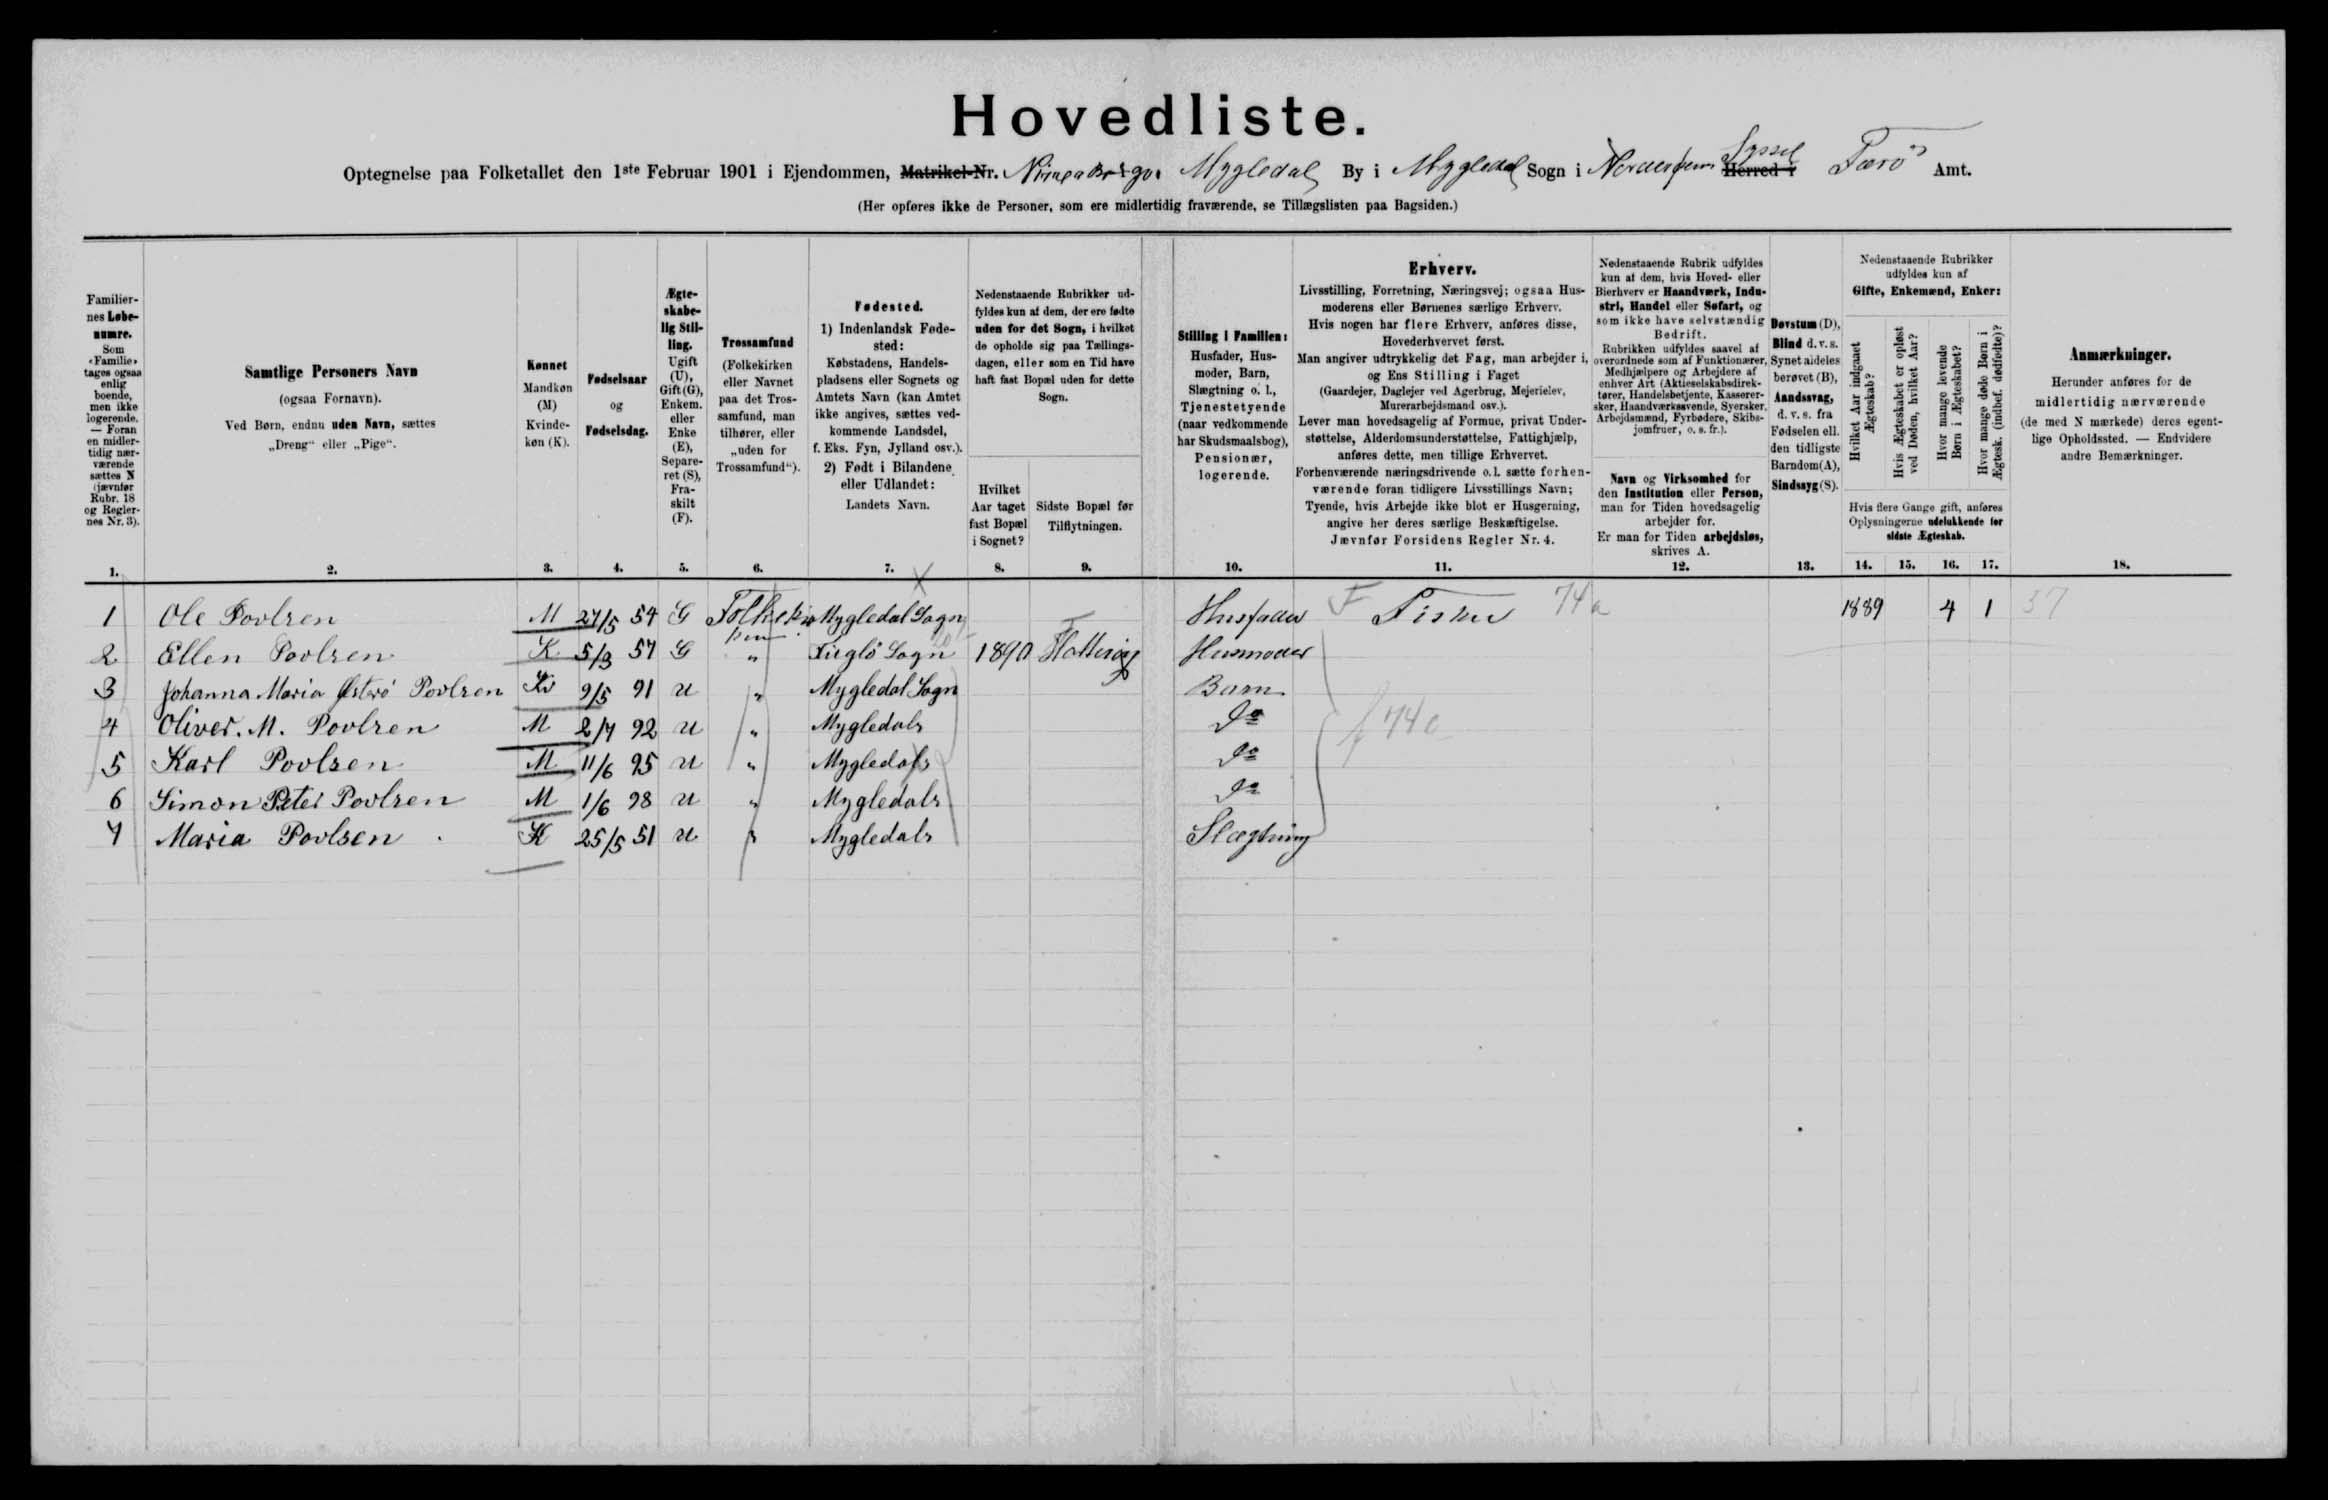 Hovedliste.
Optegnelse paa Folketallet den 1ste Februar 1901 i Ejendommen, Matrikel-Nr. Mygledal By i Mygledal Sogn i Syssel Herred i Færø Amt.
(Her opføres ikke de Personer, som ere midlertidig fraværende, se Tillægslisten paa Bagsiden.)
Familier-
nes Løbe-
numre.
Som
«Familie»
tages ogsaa
enlig
boende,
men ikke
logerende.
— Foran
en midler-
tidig nær-
værende
sættes N
(jævnfør
Rubr. 18
og Regler-
nes Nr. 3).
Samtlige Personers Navn
(ogsaa Fornavn).
Ved Børn, endnu uden Navn, sættes
„Dreng“ eller „Pige“.
Kønnet
Mandkøn
(M)
Kvinde-
køn (K).
Fødselsaar
og
Fødselsdag.
Ægte-
skabe-
lig Stil-
ling.
Ugift
(U),
Gift (G),
Enkem.
eller
Enke
(E),
Separe-
ret (S),
Fra-
skilt
(F).
Trossamfund
(Folkekirken
eller Navnet
paa det Tros-
samfund, man
tilhører, eller
„uden for
Trossamfund“).
Fødested.
1) Indenlandsk Føde-
sted:
Købstadens, Handels-
pladsens eller Sognets og
Amtets Navn (kan Amtet
ikke angives, sættes ved-
kommende Landsdel,
f. Eks. Fyn, Jylland osv.).
2) Født i Bilandene
eller Udlandet:
Landets Navn.
Nedenstaaende Rubrikker ud-
fyldes kun af dem, der ere fødte
uden for det Sogn, i hvilket
de opholde sig paa Tællings-
dagen, eller som en Tid have
haft fast Bopæl uden for dette
Sogn.
Hvilket
Aar taget
fast Bopæl
i Sognet?
Sidste Bopæl før
Tilflytningen.
Stilling i Familien:
Husfader, Hus-
moder, Barn,
Slægtning o. l.,
Tjenestetyende
(naar vedkommende
har Skudsmaalsbog),
Pensionær,
logerende.
Erhverv.
Livsstilling, Forretning, Næringsvej; ogsaa Hus-
moderens eller Børnenes særlige Erhverv.
Hvis nogen har flere Erhverv, anføres disse,
Hovederhvervet først.
Man angiver udtrykkelig det Fag, man arbejder i,
og Ens Stilling i Faget
(Gaardejer, Daglejer ved Agerbrug, Mejerielev,
Murerarbejdsmand osv.).
Lever man hovedsagelig af Formue, privat Under-
støttelse, Alderdomsunderstøttelse, Fattighjælp,
anføres dette, men tillige Erhvervet.
Forhenværende næringsdrivende o. l. sætte forhen-
værende foran tidligere Livsstillings Navn;
Tyende, hvis Arbejde ikke blot er Husgerning,
angive her deres særlige Beskæftigelse.
Jævnfør Forsidens Regler Nr. 4.
Nedenstaaende Rubrik udfyldes
kun af dem, hvis Hoved- eller
Bierhverv er Haandværk, Indu-
stri, Handel eller Søfart, og
som ikke have selvstændig
Bedrift.
Rubrikken udfyldes saavel af
overordnede som af Funktionærer,
Medhjælpere og Arbejdere af
enhver Art (Aktieselskabsdirek-
tører, Handelsbetjente, Kasserer-
sker, Haandværkssvende, Syersker,
Arbejdsmænd, Fyrbødere, Skibs-
jomfruer, o. s. fr.).
Navn og Virksomhed for
den Institution eller Person,
man for Tiden hovedsagelig
arbejder for.
Er man for Tiden arbejdsløs,
skrives A.
Døvstum (D),
Blind d. v. s.
Synet aldeles
berøvet (B),
Aandssvag,
d. v. s. fra
Fødselen ell.
den tidligste
Barndom (A),
Sindssyg (S).
Nedenstaaende Rubrikker
udfyldes kun af
Gifte, Enkemænd, Enker:
Hvilket Aar indgaaet
Ægteskab?
Hvis Ægteskabet er opløst
ved Døden, hvilket Aar?
Hvor mange levende
Børn i Ægteskabet?
Hvor mange døde Børn i
Ægtesk. (indbef. dødfødte)?
Hvis flere Gange gift, anføres
Oplysningerne udelukkende for
sidste Ægteskab.
Anmærkninger.
Herunder anføres for de
midlertidig nærværende
(de med N mærkede) deres egent-
lige Opholdssted. — Endvidere
andre Bemærkninger.
1. 2. 3. 4. 5. 6. 7. 8. 9. 10. 11. 12. 13. 14. 15. 16. 17. 18.
1 Ole Povlsen M 27/5 54 G Folkekirken Mygledal Sogn Husfader F Fisker 74a 1889 4 1 37
2 Ellen Povlsen K 5/3 57 G " Fuglö Sogn 1890 Hattervig Husmoder
3 Johanna Maria Øströ Povlsen Kv 9/5 91 u " Mygledal Sogn Barn
4 Oliver. M. Povlsen M 2/7 92 u " Mygledals Do f 74a
5 Karl Povlsen M 11/6 95 u " Mygledals Do
6 Simon Peter Povlsen M 1/6 98 u " Mygledals Do
7 Maria Povlsen K 25/5 51 u " Mygledals Slægtning